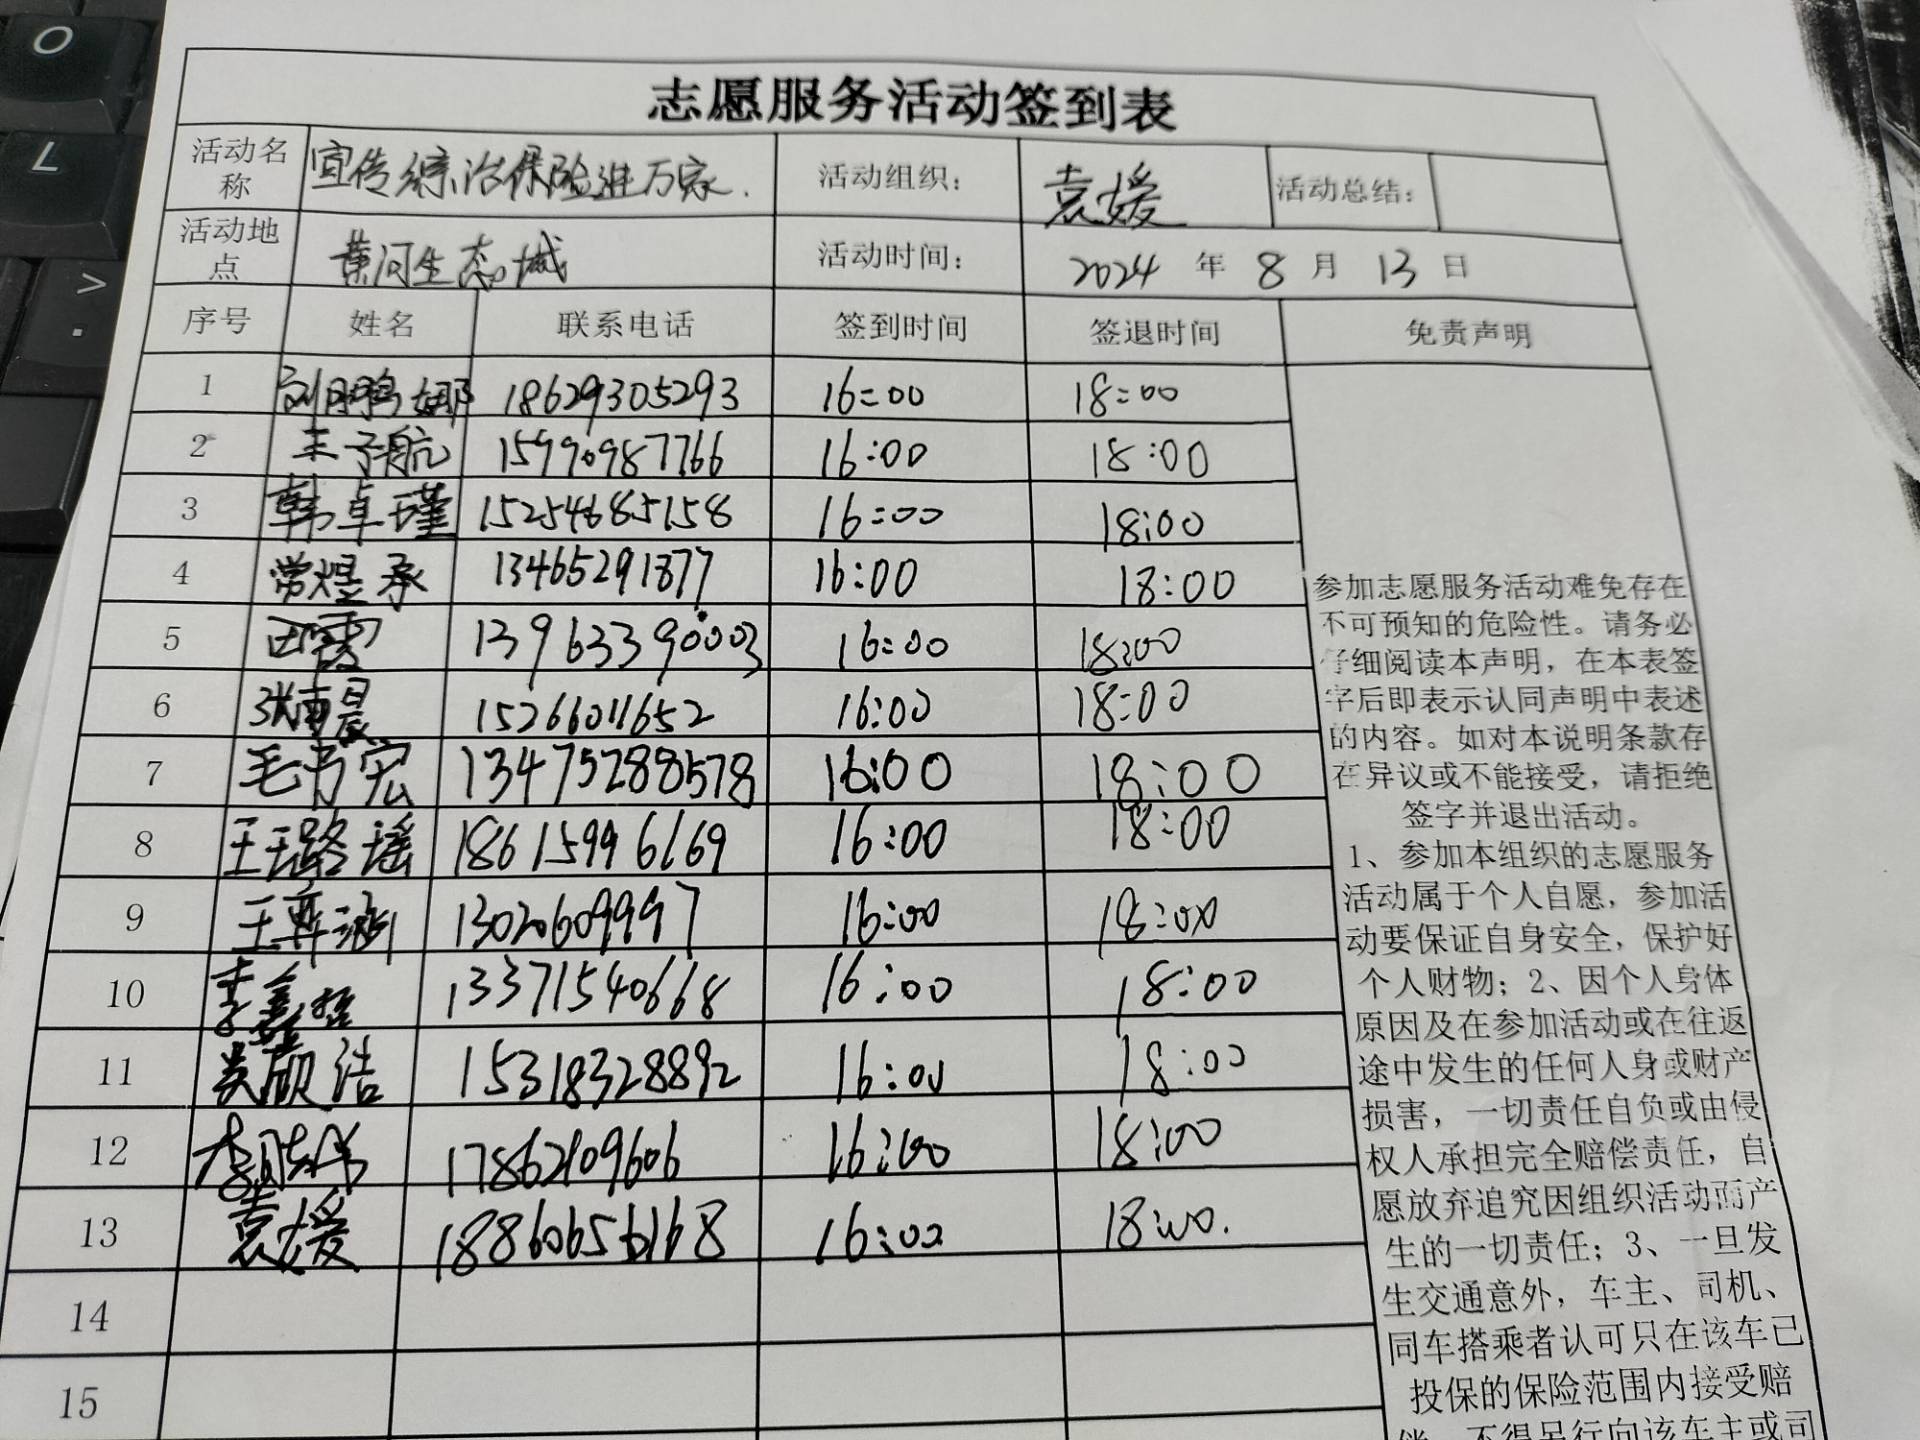 志愿服务活动签到表
活动名称 宣传综治保险进万家. 活动组织: 袁媛 活动总结:
活动地点 黄河生态城 活动时间: 2024 年 8 月 13 日
序号 姓名 联系电话 签到时间 签退时间 免责声明
1 刘鹏娜 18629305293 16:00 18:00
2 丰子航 15990987766 16:00 18:00
3 韩卓瑾 15254685158 16:00 18:00
4 常煜承 13465291877 16:00 18:00
5 田霞 13963390003 16:00 18:00
6 15266011652 16:00 18:00
7 毛书宏 13475288578 16:00 18:00
8 王玉璐瑶 18615996169 16:00 18:00
9 13020609997 16:00 18:00
10 13371540668 16:00 18:00
11 娄颀洁 15318328892 16:00 18:00
12 17862109606 16:00 18:00
13 袁媛 18860656168 16:00 18:00.
14
15
参加志愿服务活动难免存在
不可预知的危险性。请务必
仔细阅读本声明，在本表签
字后即表示认同声明中表述
的内容。如对本说明条款存
在异议或不能接受，请拒绝
签字并退出活动。
1、参加本组织的志愿服务
活动属于个人自愿，参加活
动要保证自身安全，保护好
个人财物；2、因个人身体
原因及在参加活动或在往返
途中发生的任何人身或财产
损害，一切责任自负或由侵
权人承担完全赔偿责任，自
愿放弃追究因组织活动而产
生的一切责任；3、一旦发
生交通意外，车主、司机、
同车搭乘者认可只在该车已
投保的保险范围内接受赔
偿，不得另行向该车主或司